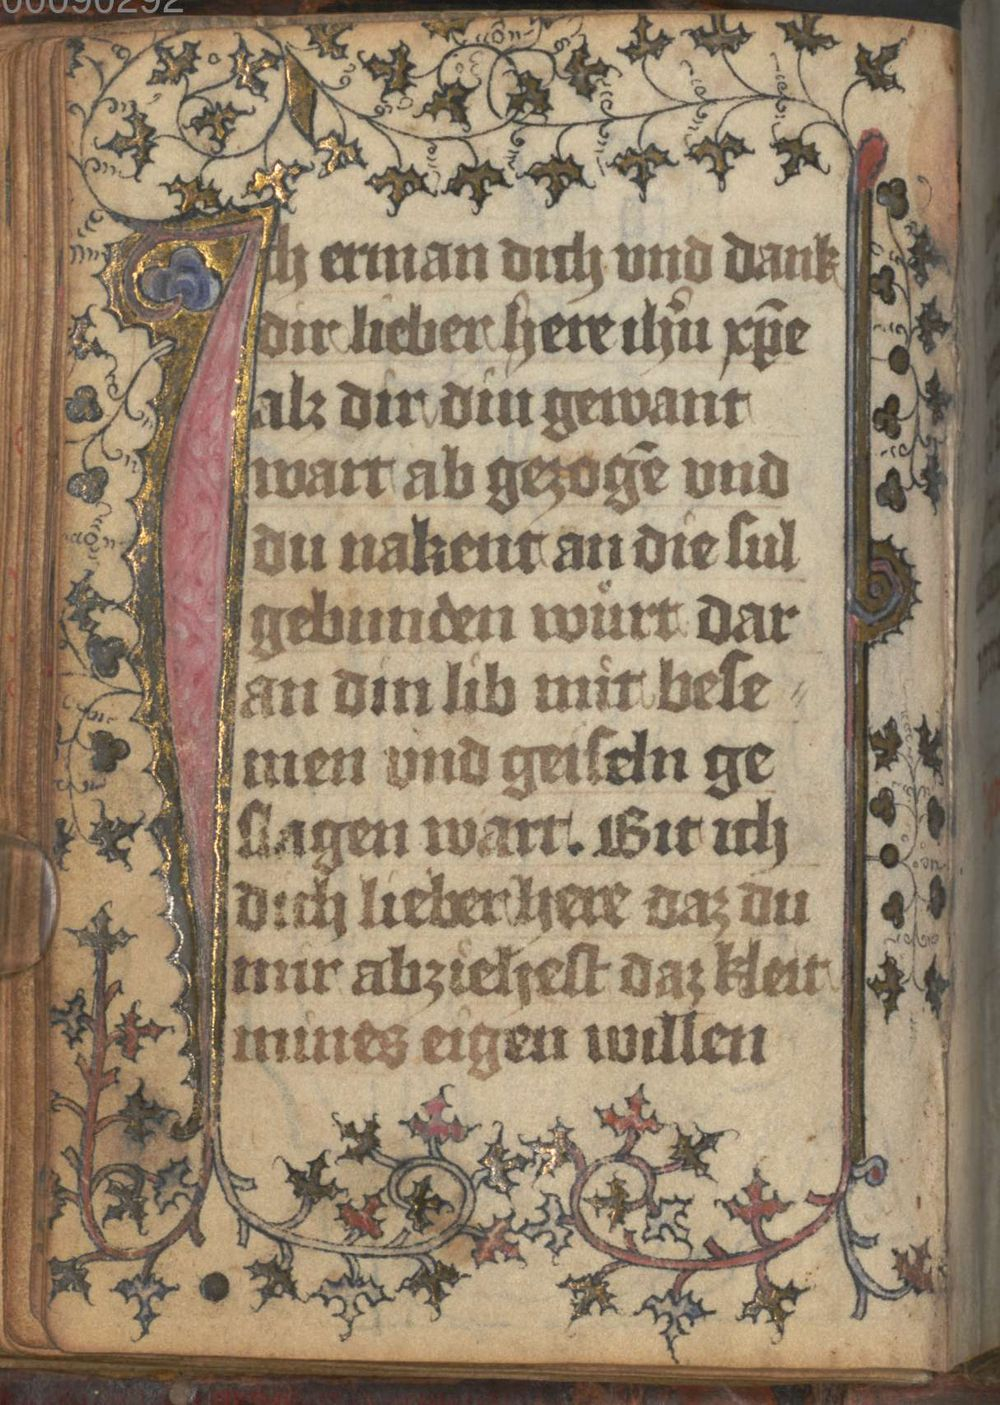 00090292
Ich erman dich vnd dank
dir lieber here ihū xp̄e
alz dir din gewant
wart ab gezogē vnd
du nakent an die sul
gebunden wůrt dar
an din lib mit bese
men vnd geiseln ge
slagen wart. Bit ich
dich lieber here daz du
mir abziehest daz kleit
mines eigen willen